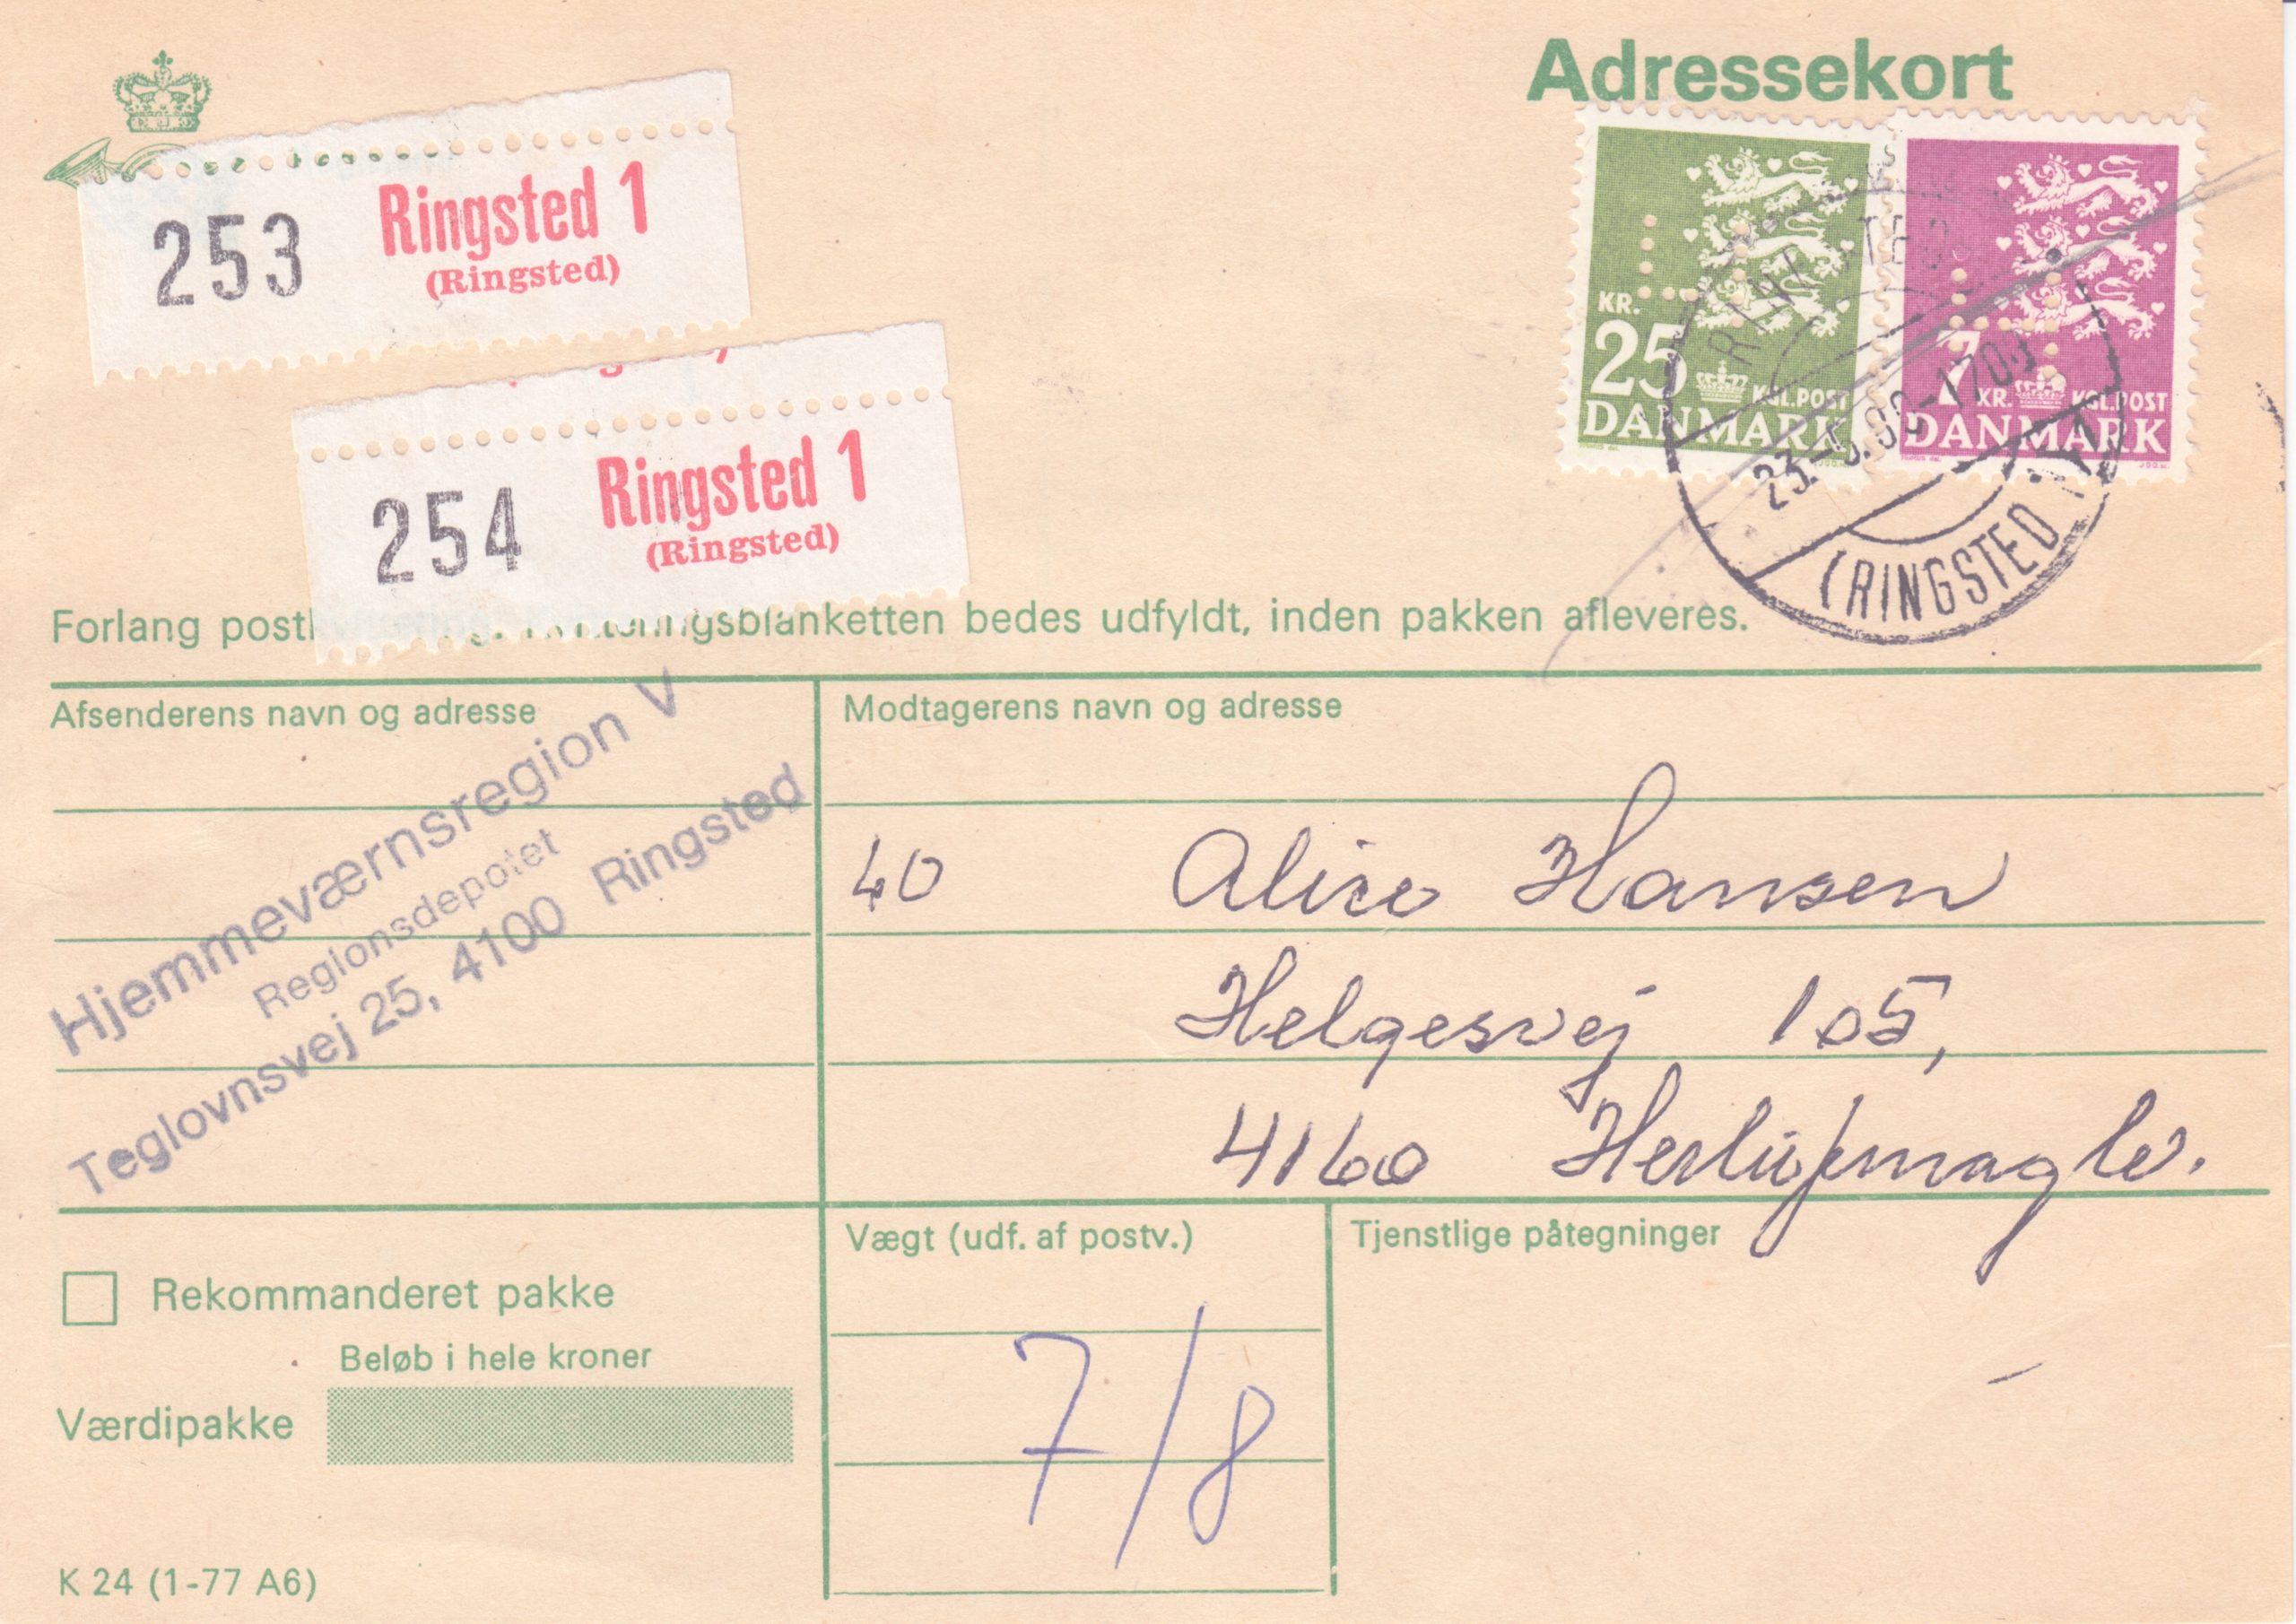 Adressekort
253 Ringsted 1
(Ringsted)
254 Ringsted 1
(Ringsted)
KR.
25
KGL.POST
DANMARK
7
KR. KGL.POST
DANMARK
(RINGSTED
Forlang bedes udfyldt, inden pakken afleveres.
Afsenderens navn og adresse
Hjemmeværnsregion V
Regionsdepotet
Teglovnsvej 25, 4100 Ringsted
Modtagerens navn og adresse
40 Alice Hansen
Helgesvej 105,
4160 Herlufmagle.
Rekommanderet pakke
Beløb i hele kroner
Værdipakke
Vægt (udf. af postv.)
7/8
Tjenstlige påtegninger
K 24 (1-77 A6)